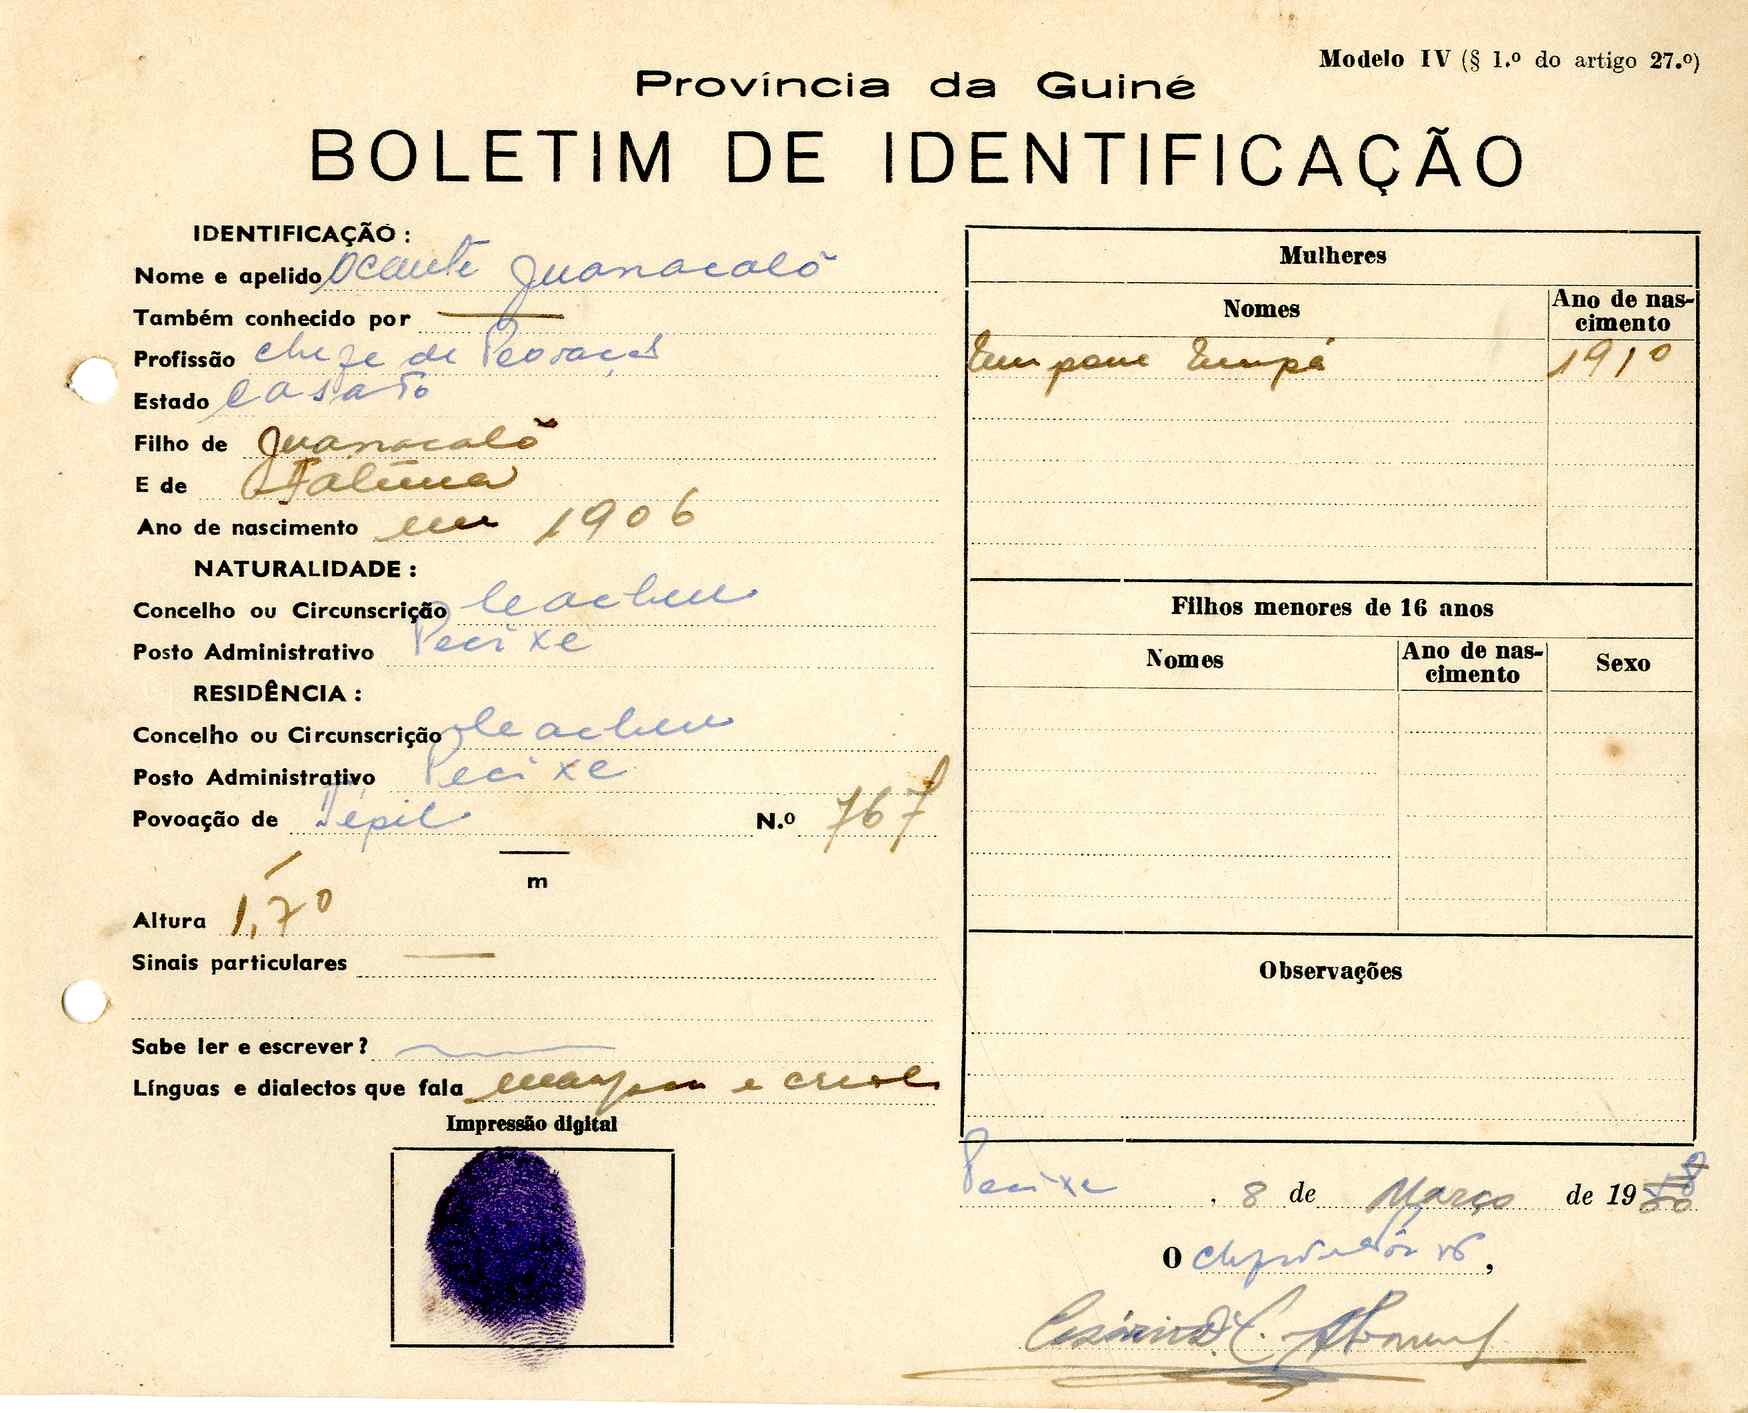 Modelo IV (§ 1.º do artigo 27.º)
Província da Guiné
BOLETIM DE IDENTIFICAÇÃO
IDENTIFICAÇÃO :
Nome e apelido Ocante Juanacalõ
Também conhecido por
Profissão chefe de
Estado casado
Filho de Juanacalõ
E de
Ano de nascimento em 1906
NATURALIDADE :
Concelho ou Circunscrição Cacheu
Posto Administrativo Pecixe
RESIDÊNCIA :
Concelho ou Circunscrição Cacheu
Posto Administrativo Pecixe
Povoação de N.º 767
m
Altura 1,70
Sinais particulares
Sabe ler e escrever?
Línguas e dialectos que fala e
Impressão digital
Mulheres
Nomes Ano de nascimento
1910
Filhos menores de 16 anos
Nomes Ano de nascimento Sexo
Observações
Pecixe, 8 de Março de 19
O